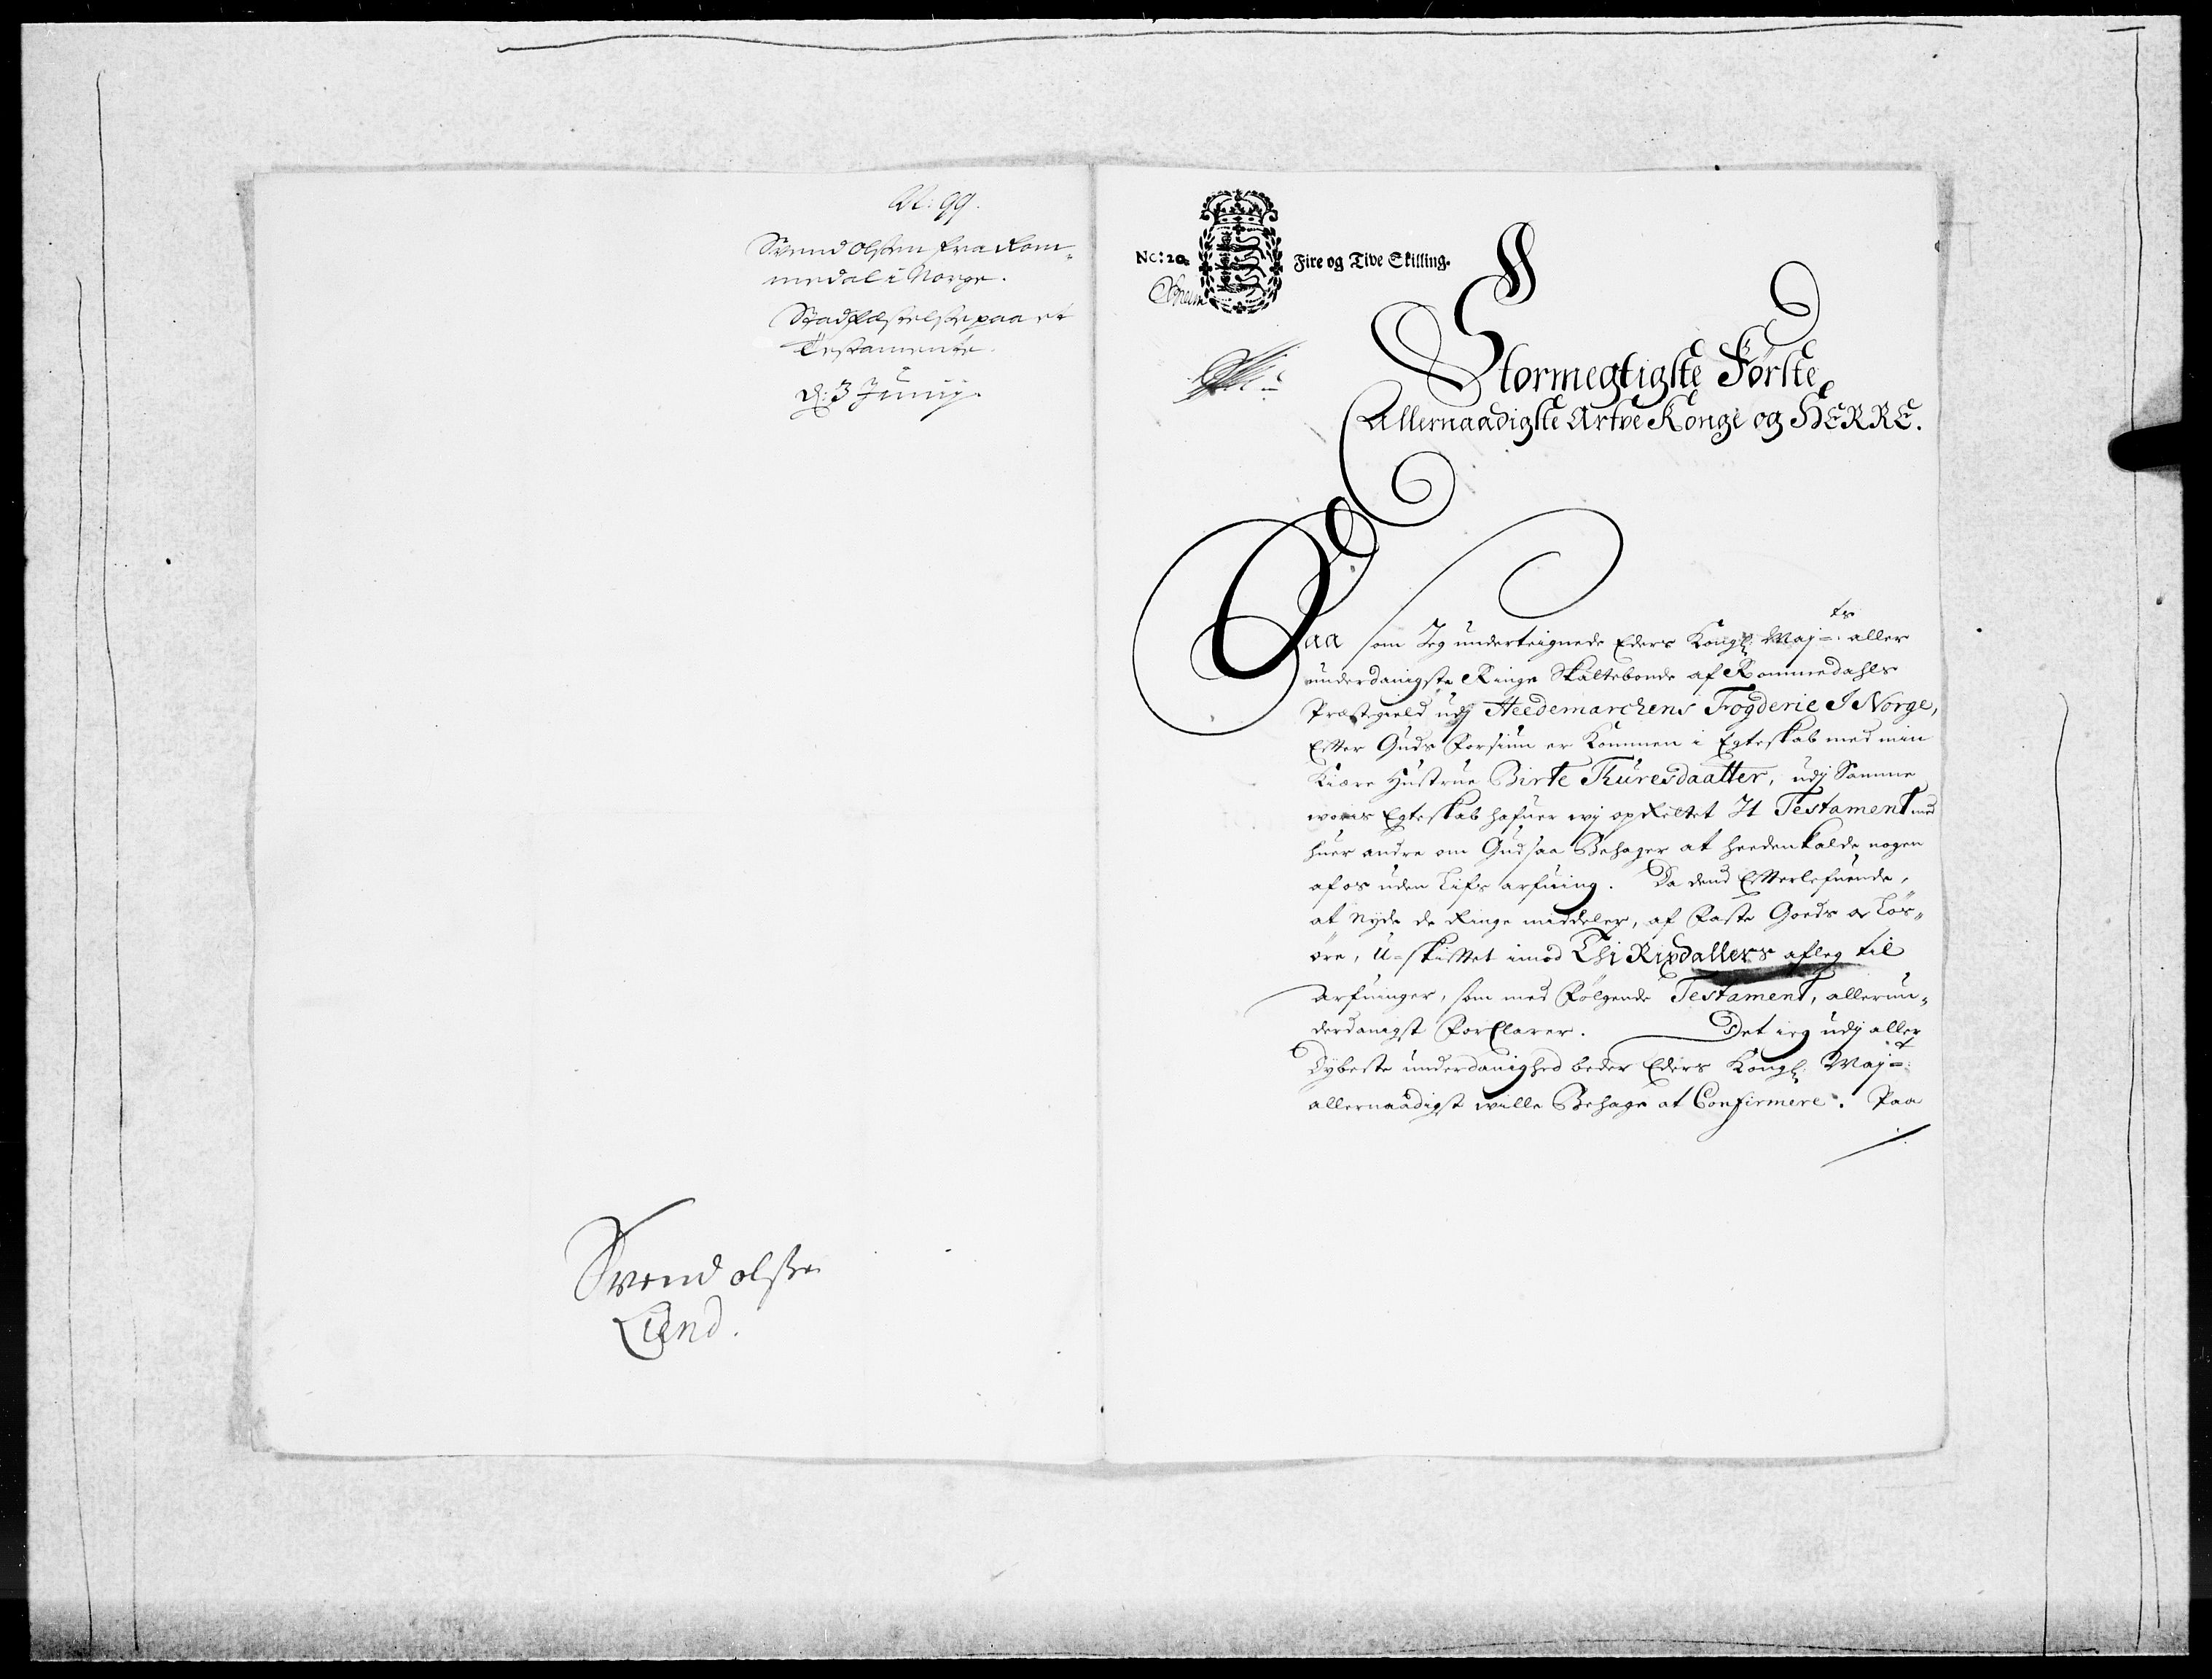 N: 99.
Svend Olssen fra Rom¬
medal i Norge.
Stadfæstelse paa et
Testamente.
d: 3 Junij.
Svend olssen
Liend.
No: 20. Fire og Tive Skilling.
Stormegtigste Første
Allernaadigste Arfve Konge og HERRE.
Saa som Jeg underteignede Eders Kongl: Maj=ts aller
underdanigste Ringe Skattebonde af Rommedahls
Præstegield udj Heedemarchens Fogderie I Norge,
Efter Guds Forsiun er kommen i Egteskab med min
Kiære Hustrue Birte Thuresdaatter, udj Samme
woris Egteskab hafuer wij oprettet It Testament med
huer andre om Gud saa Behager at heedenkalde nogen
af os uden Lifs arfuing. Da dend Efterlefuende,
at nyde de Ringe middeler, af Faste Goeds og Løs¬
øre, U=skiftet imod Thi Rixdallers afleg til
Arfuinger, som med følgende Testament, allerun¬
derdanigst ForClarer. Det ieg udj aller
Dybeste underdanighed beder Eders Kongl: Maj=t:
allernaadigst wille Behage at Confirmere. Paa